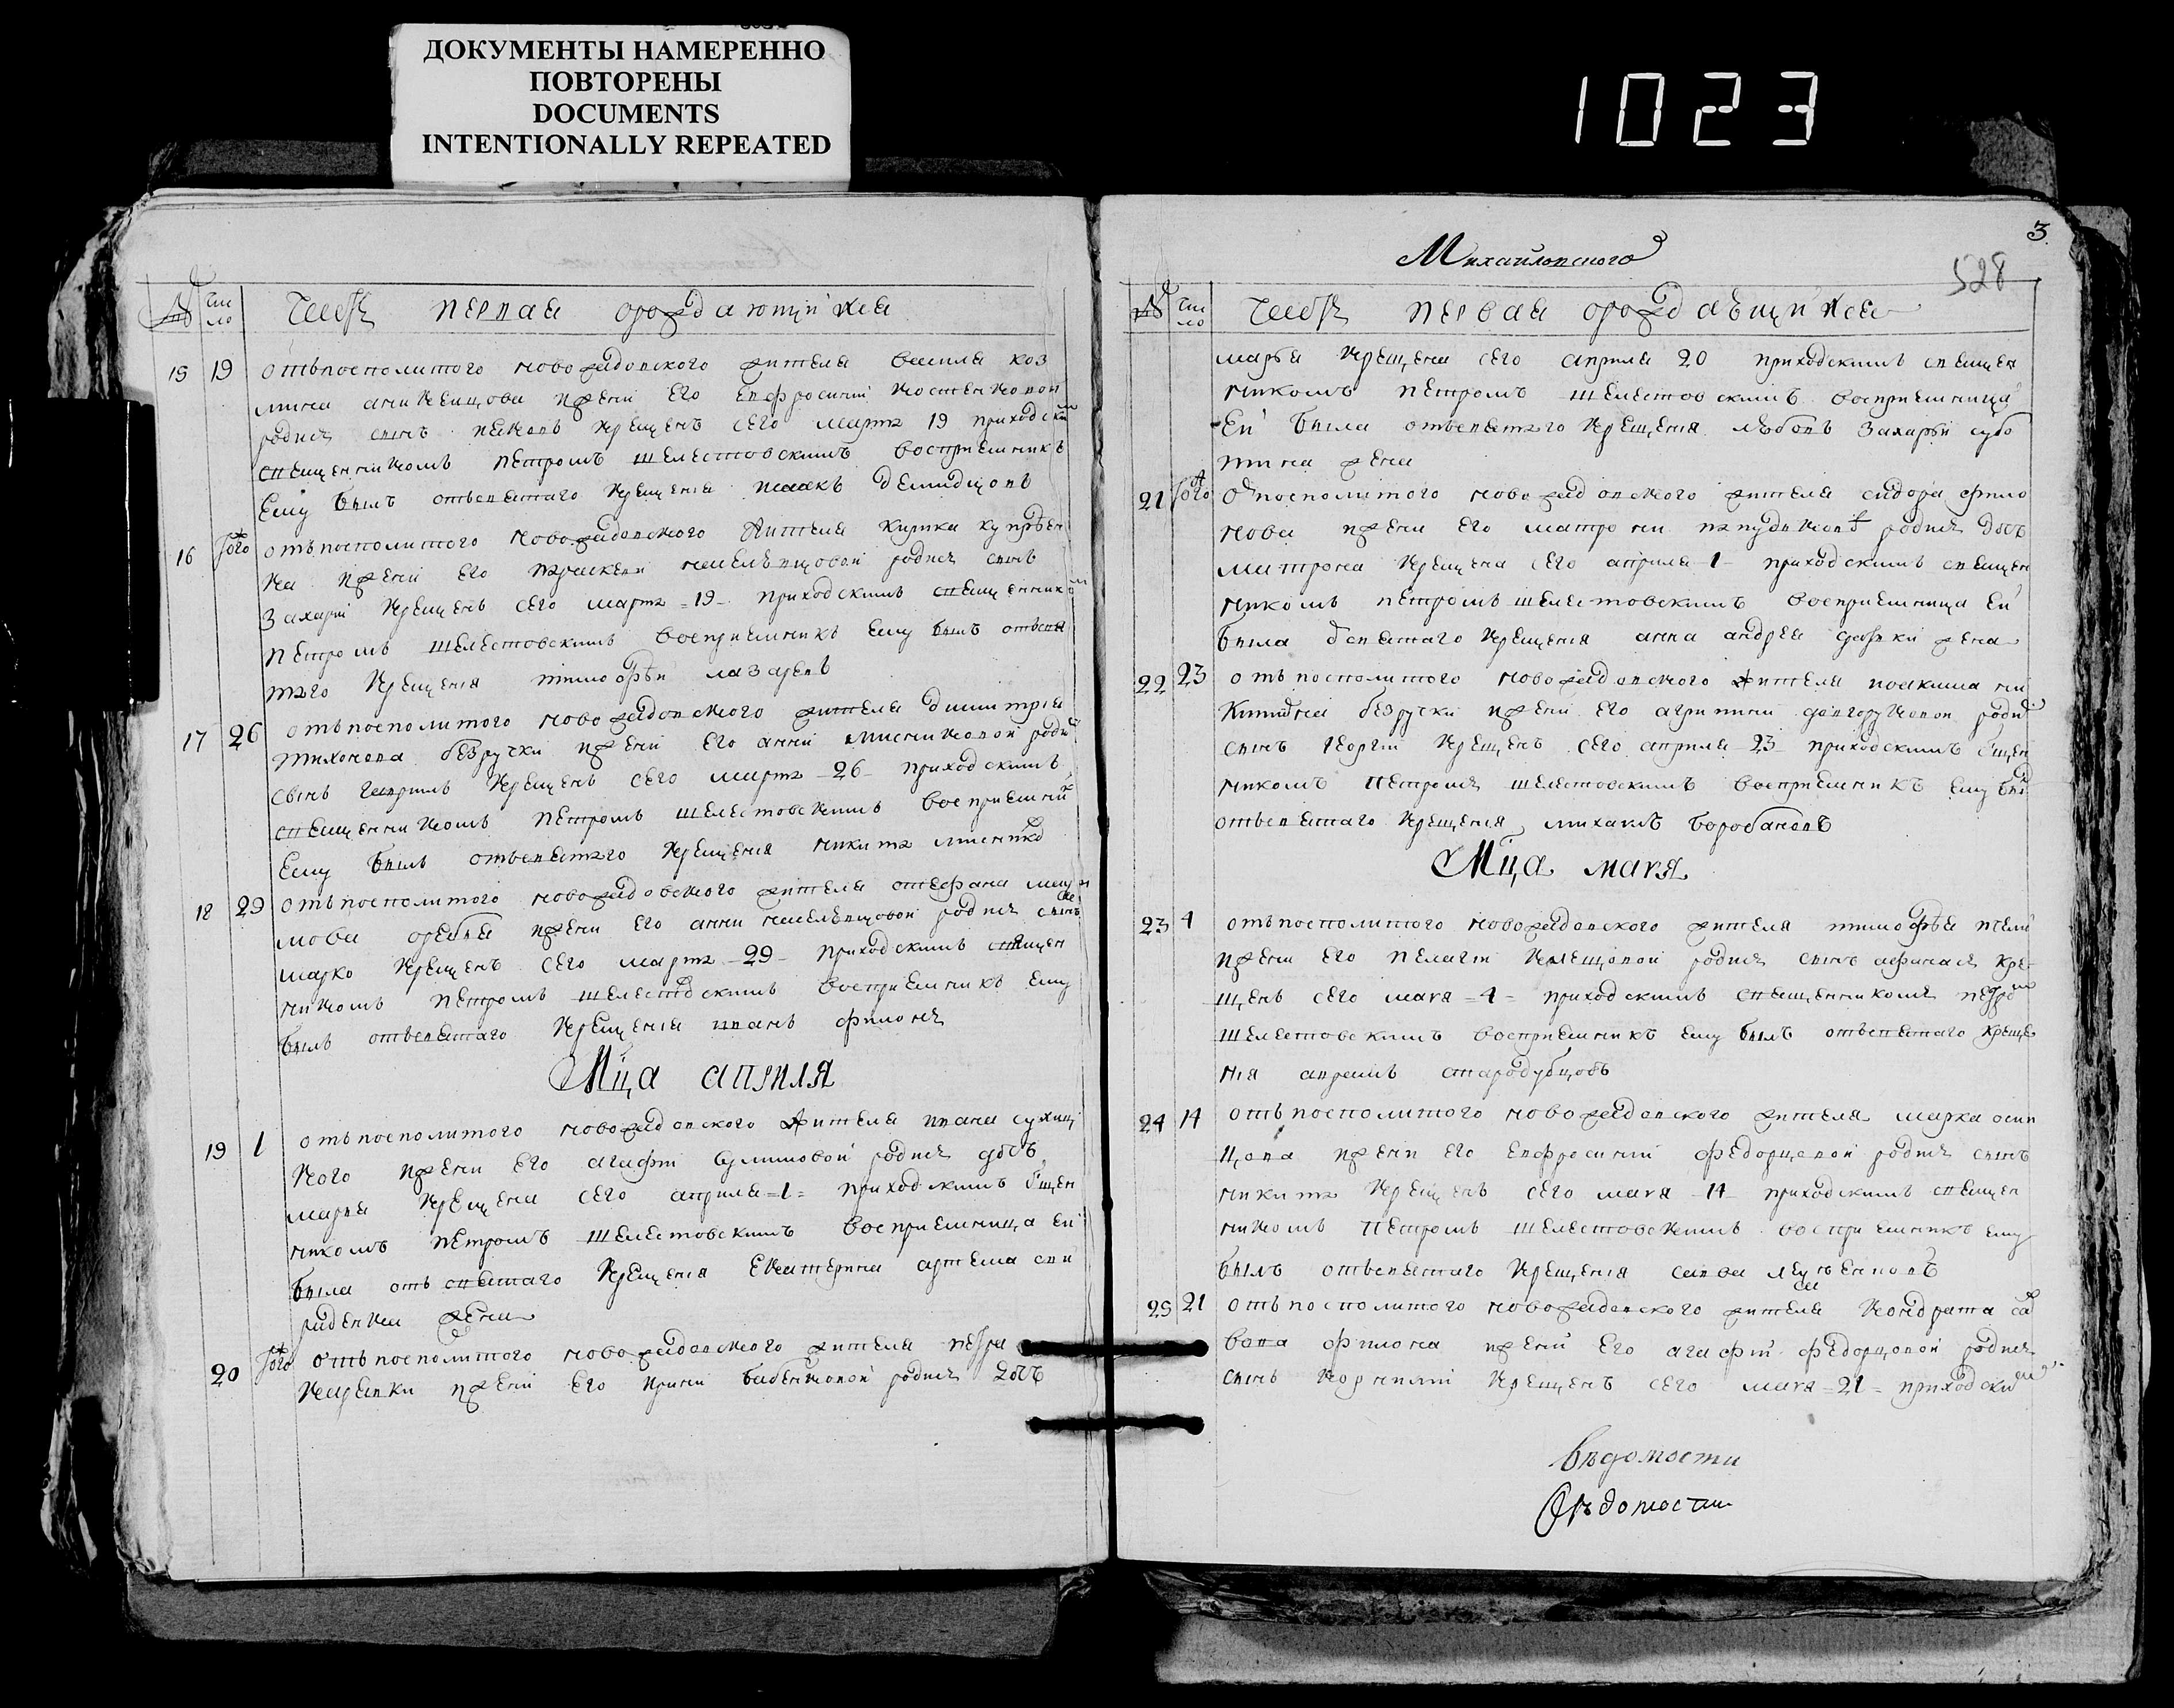 ДОКУМЕНТЫ НАМЕРЕННО
ПОВТОРЕНЫ
DOCUMENTS
INTENTIONALLY REPEATED
1023
№ число Часть первая орождающихся
15 19 отъ посполитого новожадовского жителя василя коз
мина жени его ефросинии
родися сынъ иаковъ крещенъ сего марта 19 приходским
священникомъ петромъ шелестовскимъ восприемникъ
ему былъ отъ святаго крещения исаакъ
16 того отъ посполитого новожадовского жителя кирика
жени его родися сынъ
захарий крещенъ сего марта 19 приходскимъ священником
петромъ шелестовскимъ восприемникъ ему былъ отъ свя
таго крещения тимофѣй лазаревъ
17 26 отъ посполитого новожадовского жителя димитрия
тихонова безручки жени его анни родися
сынъ гавриилъ крещенъ сего марта 26 приходскимъ
священникомъ петромъ шелестовскимъ восприемник
ему былъ отъ святаго крещения никита
18 29 отъ посполитого новожадовского жителя стефана
жени его анни родися сынъ
марко крещенъ сего марта 29 приходскимъ священ
никомъ петромъ шелестовскимъ восприемникъ ему
былъ отъ святаго крещения иванъ филонъ
Мца априля
19 1 отъ посполитого новожадовского жителя ивана
жени его агафии сулимовой родися дочъ
мария крещена сего априля 1 приходскимъ свщен
никомъ петромъ шелестовскимъ восприемница ей
была отъ святаго крещения екатерина артема спи
риденка жена
20 того отъ посполитого новожадовского жителя петра
жени его ирини бабенковой родися дочъ
3
Михайловского
528
№ число Часть первая орождающихся
марфа крещена сего априля 20 приходскимъ священ
никомъ петромъ шелестовскимъ восприемница
ей была отъ святаго крещения любовъ захарьи субо
тина жена
21 того от посполитого новожадовского жителя сидора фило
нова жени его матрони родися дочъ
матрона крещена сего априля 1 приходскимъ священ
никомъ петромъ шелестовскимъ восприемница ей
была от святаго крещения анна андрея жена
22 23 отъ посполитого новожадовского жителя иоакима ни
китина безручки жени его агрипини долгоруковой роди
сынъ георгий крещенъ сего априля 23 приходскимъ свщен
никомъ петромъ шелестовскимъ восприемникъ ему был
отъ святаго крещения михаилъ барабановъ
Мца мая
23 4 отъ посполитого новожадовского жителя тимофѣя
жени его пелагии родися сынъ афанасй кре
щенъ сего мая 4 приходскимъ священникомъ петром
шелестовскимъ восприемникъ ему былъ отъ святаго креще
ния стародубцовъ
24 14 отъ посполитого новожадовского жителя марка осип
цова жени его ефросинии федорцовой родися сынъ
никита крещенъ сего мая 14 приходскимъ священ
никомъ петромъ шелестовскимъ восприемникъ ему
былъ отъ святаго крещения савва
25 21 отъ посполитого новожадовского жителя кондрата са
вова филона жени его агафии федорцовой родися
сынъ корнилий крещенъ сего мая 21 приходским
вѣдомости
Вѣдомости